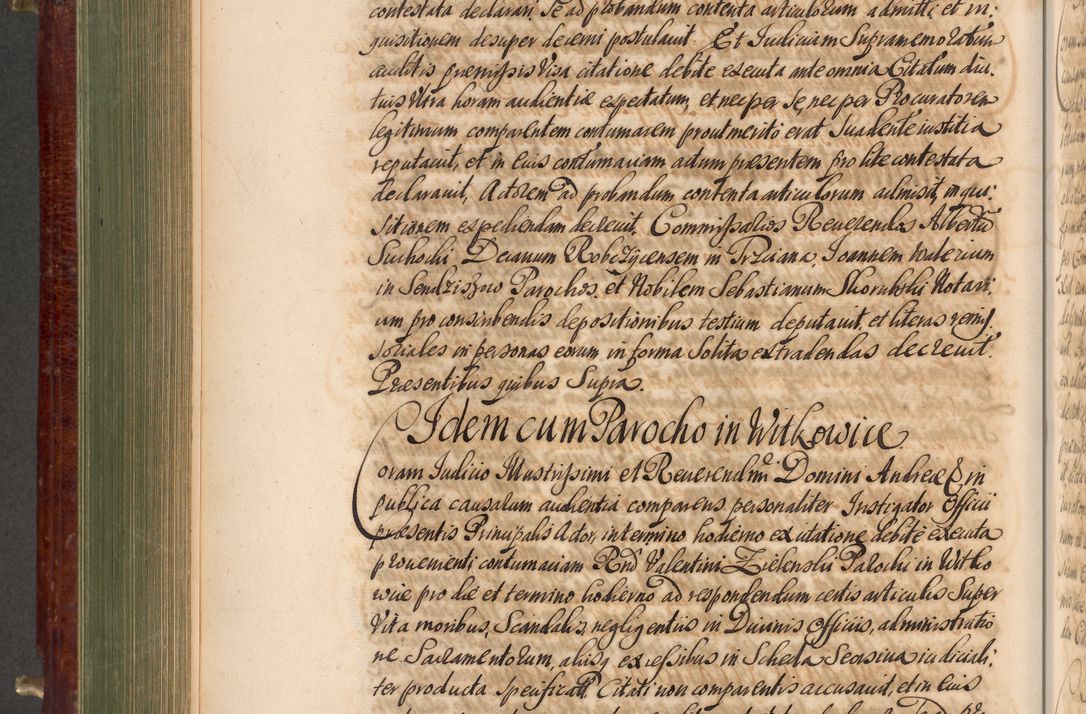 contestata declarari, se ad probandum contenta articulorum admitti, et in:
quisitionem desuper decerni postulauit. Et Iudicium Supramemoratum
auditis præmissis Visa citatione debite executa ante omnia Citatum diu:
tuis Vltra horam audientiæ expectatum, et nec per se, nec per Procuratorem
legitimum comparentem contumacem prout merito erat Suadente iustitia
reputauit, et in Eius contumaciam actum præsentem pro lite contestata
declarauit, Actorem ad probandum contenta articulorum admisit, inqui:
sitionem expediendam decreuit. Commissarios Reuerendos Albertū
Suchocki Decanum Robczycensem in Trzciana, Joannem Walerium
in Sendziszow Parochos, et Nobilem Sebastianum Skorubski Notari:
um pro conscribendis depositionibus testium deputauit, et literas remis
soriales in personas eorum in forma solita extradendas decreuit.
Præsentibus quibus Supra.
Idem cum Parocho in Witkowice
Coram Iudicio Illustrissimi et Reuerendmi Domini Andreæ & in
publica causarum audientia comparens personaliter Instigator Officii
præsentis Principalis Actor, in termino hodierno ex citatione debite executa
prouenienti contumaciam Rnd Valentini Zielenski Parochi in Witko
wice pro die et termino hodierno ad respondendum certis articulis Super
Vita moribus, Scandalis, negligentiis in Diuinis Officiis, administratio
ne Sacramentorum, aliisq excessibus in Scheda Seorsiua iudiciali:
ter producta specificatt. Citati non comparentis accusauit, et in Eius